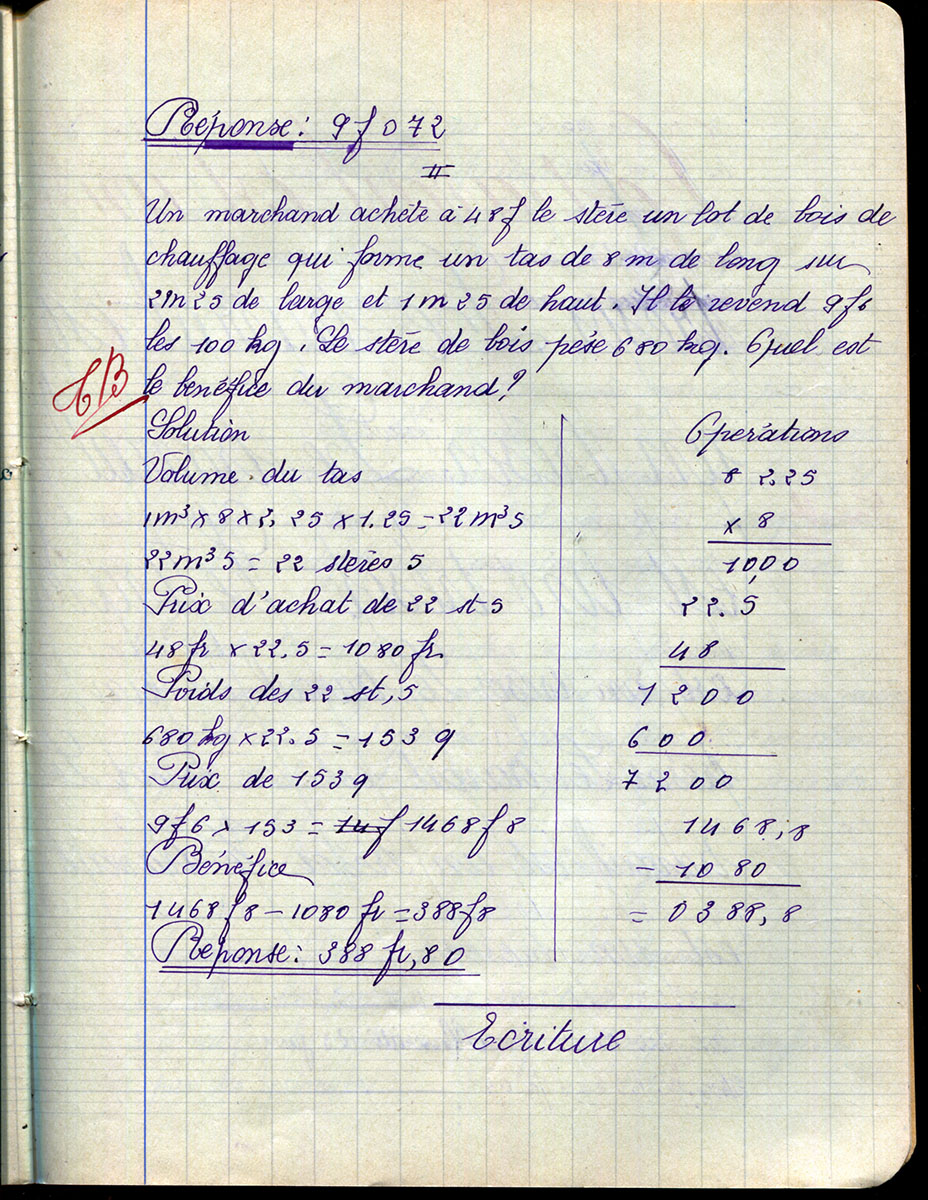 Réponse: 9f072
II
Un marchand achète à 48f le stère un lot de bois de
chauffage qui forme un tas de 8m de long sur
2m25 de large et 1m25 de haut. Il le revend 9f6
les 100kg. Le stère de bois pèse 680 kg. Quel est
le benéfice du marchand?
TB
Solution
Volume du tas
1m³ x 8 x 2,25 x 1.25 = 22m³5
22m³5 = 22 stères 5
Prix d'achat de 22 st 5
48fr x 22.5 = 1080 fr.
Poids des 22 st,5
680 kg x 22.5 = 153 q
Prix de 153 q
9f6 x 153 = 14f 1468f8
Bénéfice
1468f8 - 1080 fr = 388f8
Réponse: 388 fr,80
Opérations
8 2.25
x 8
1000
22.5
48
1200
600
7200
1468,8
- 1080
= 0388,8
Ecriture